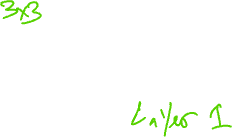 3x3
Layer 1